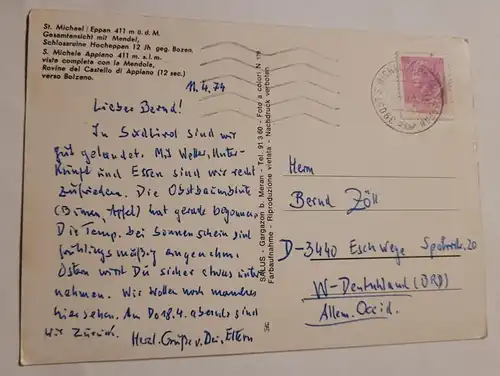 St. Michael / Eppan 411 m ü. d. M.
Gesamtansicht mit Mendel,
Schlossruine Hocheppan 12 Jh geg. Bozen.
S. Michele Appiano 411 m. s. l. m.
vista completa con la Mendola,
Rovine del Castello di Appiano (12 sec.)
verso Bolzano.
11.4.74
Lieber Bernd!
In Südtirol sind wir
gut gelandet. Mit Wetter, Unter-
künft und Essen sind wir recht
zufrieden. Die Obstbaumblüte
(Birnen, Äpfel) hat gerade begonnen.
Die Temp. bei Sonnenschein sind
frühlingsmäßig angenehm.
Ostern wirst Du sicher etwas unter-
nehmen. Wir wollen noch manches
hier sehen. Am Do 18.4. abends sind
wir zurück. Herzl. Grüße v. Dei. Eltern
SALUS - Gargazon b. Meran - Tel. 91 3 60 - Foto a colori N. 178
Farbaufnahme - Riproduzione vietata - Nachdruck verboten
Herrn
Bernd Zöll
D-3440 Eschwege Spohrstr. 20
W-Deutschland (BRD)
Allem. Occid.